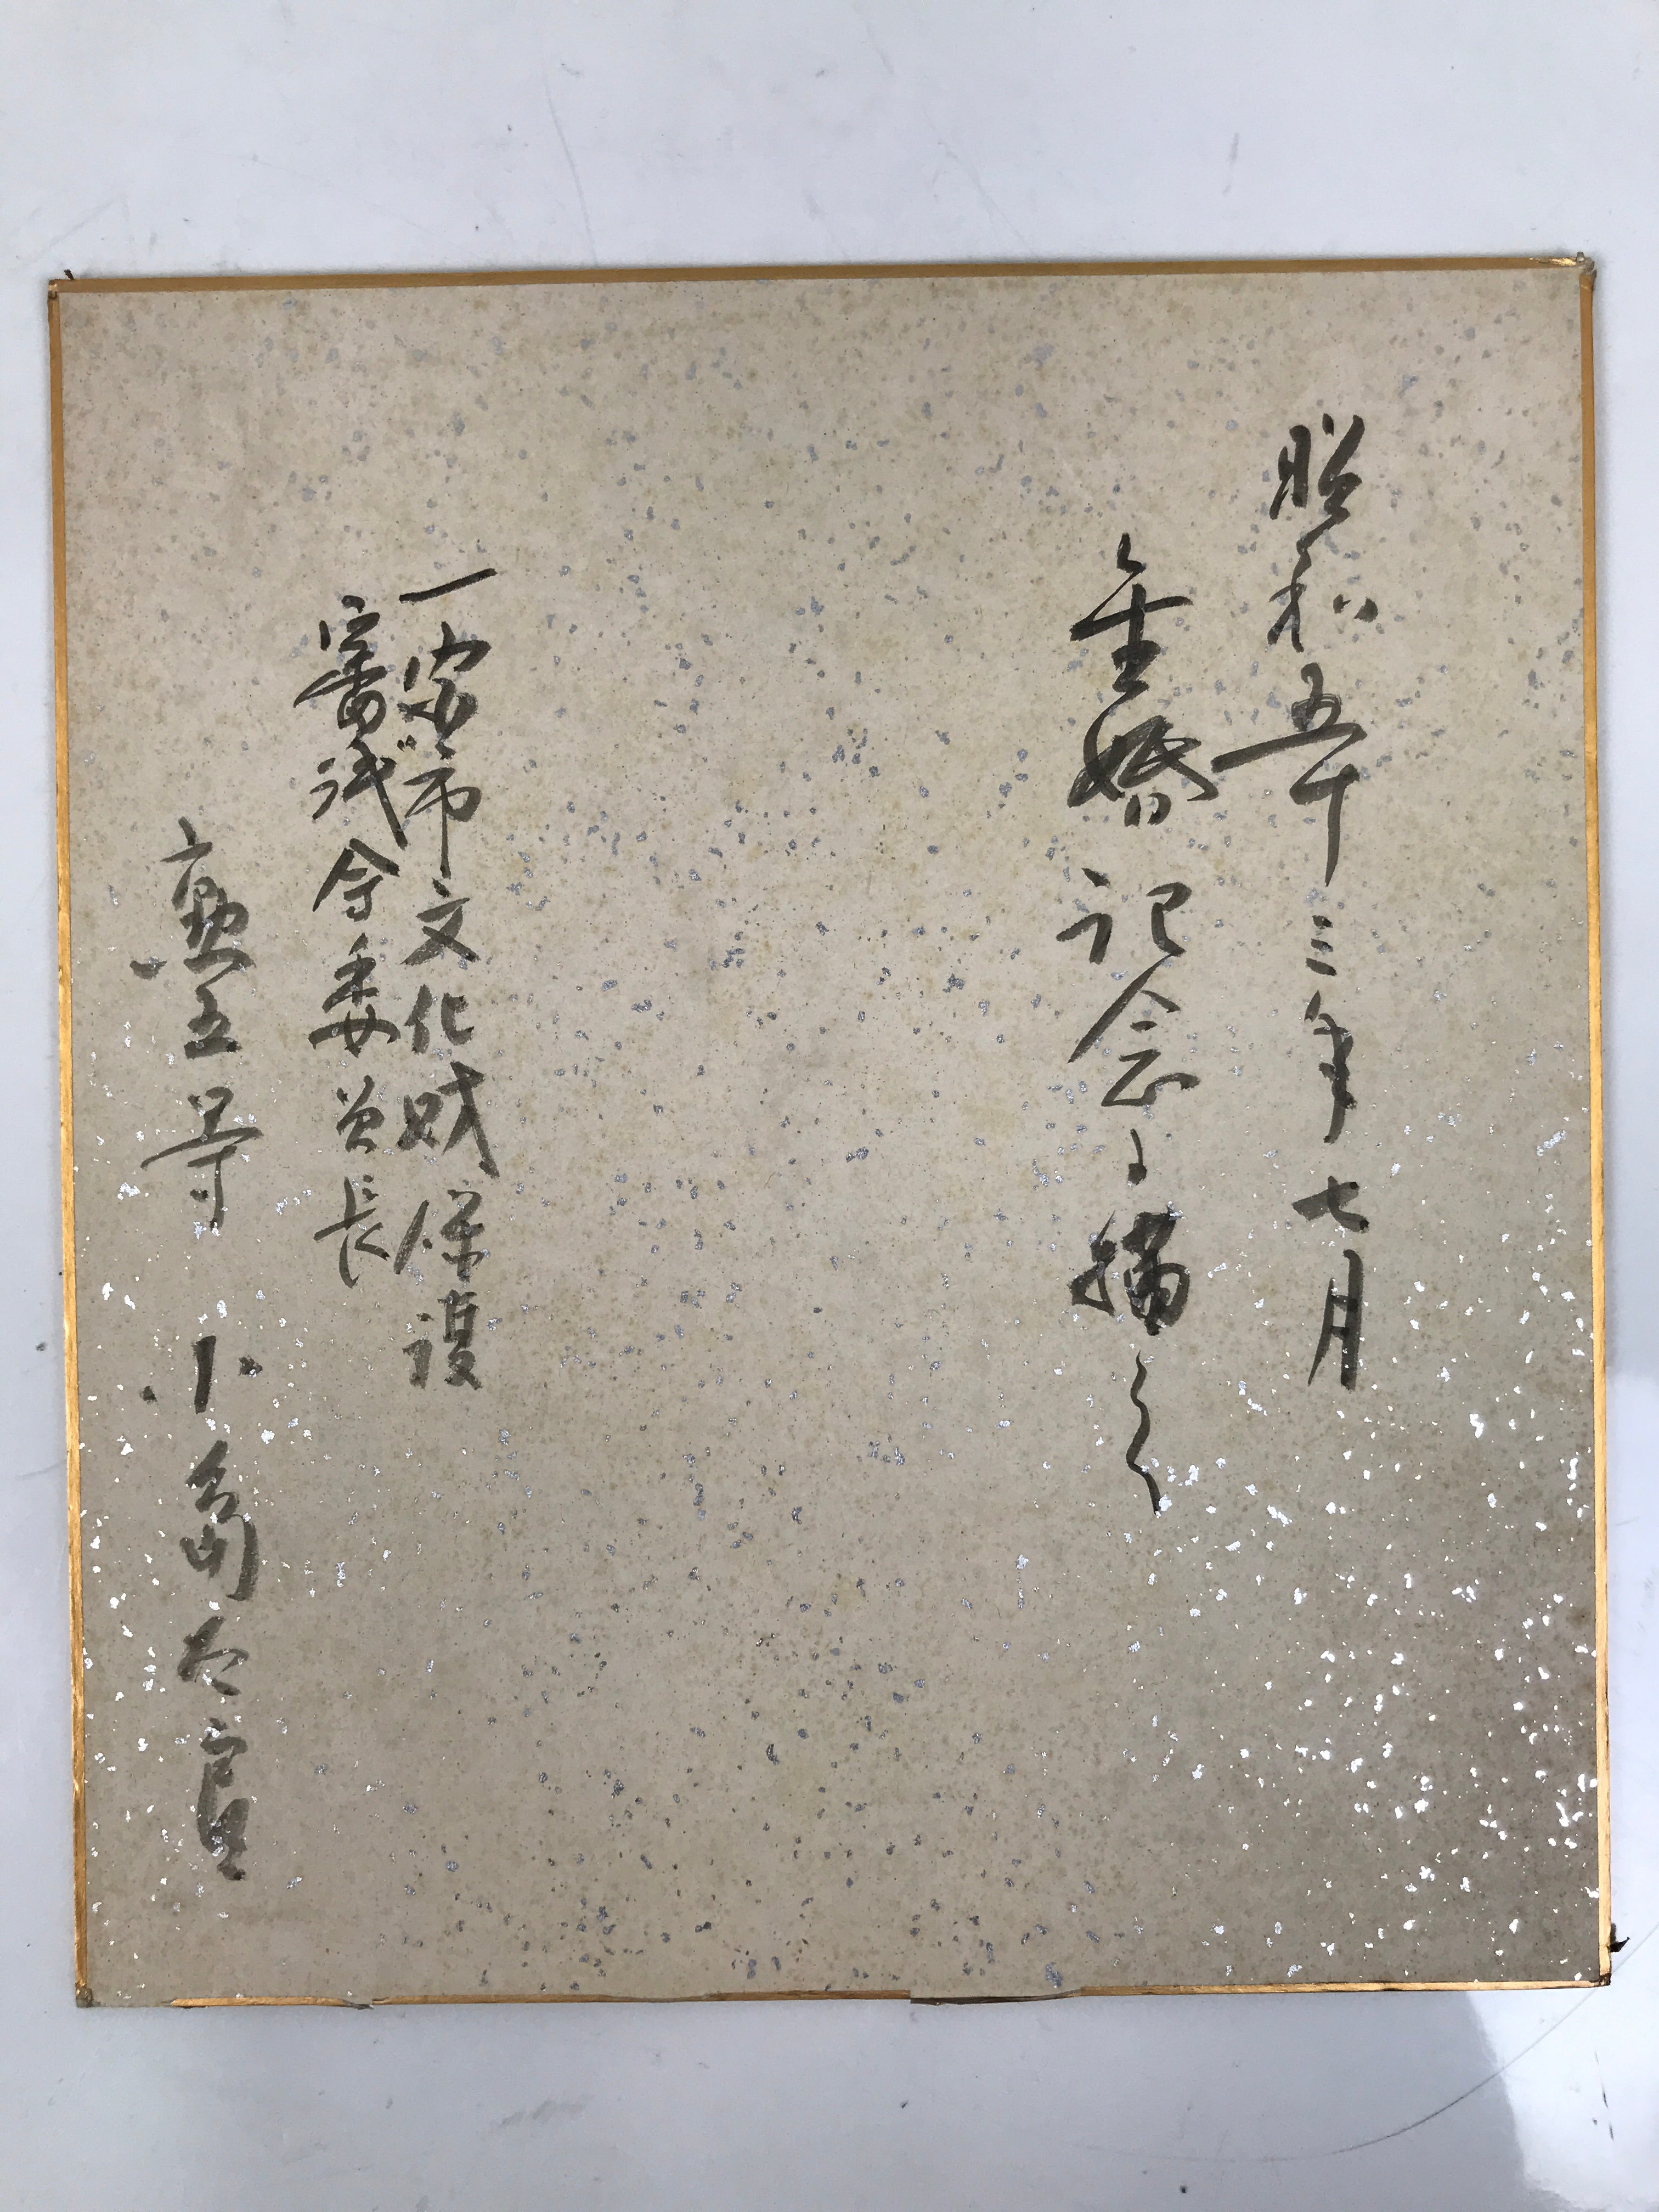 昭和五十三年七月
金婚記念に描之
一宮市文化財保護
審議会委員長
勲五等 小島